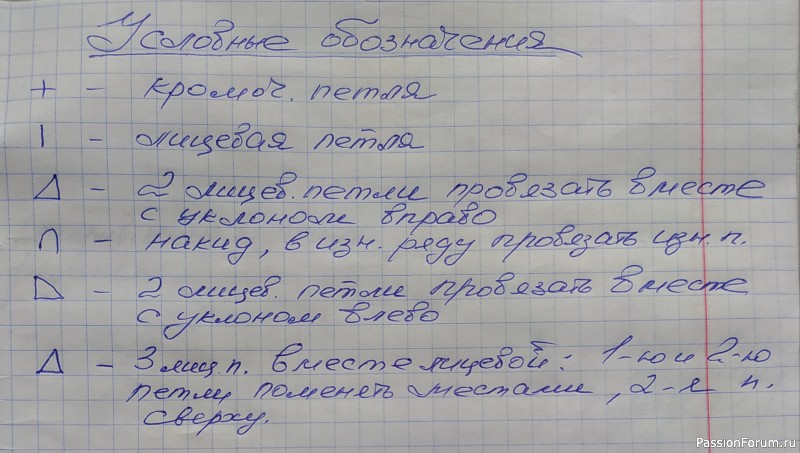 Условные обозначения
+ - кромоч. петля
| - лицевая петля
- 2 лицев. петли провязать вместе
с уклоном вправо
∩ - накид, в изн. ряду провязать изн. п.
- 2 лицев. петли провязать вместе
с уклоном влево
- 3 лиц п. вместе лицевой: 1-ю и 2-ю
петли поменять местами, 2-я п.
сверху.
PassionForum.ru